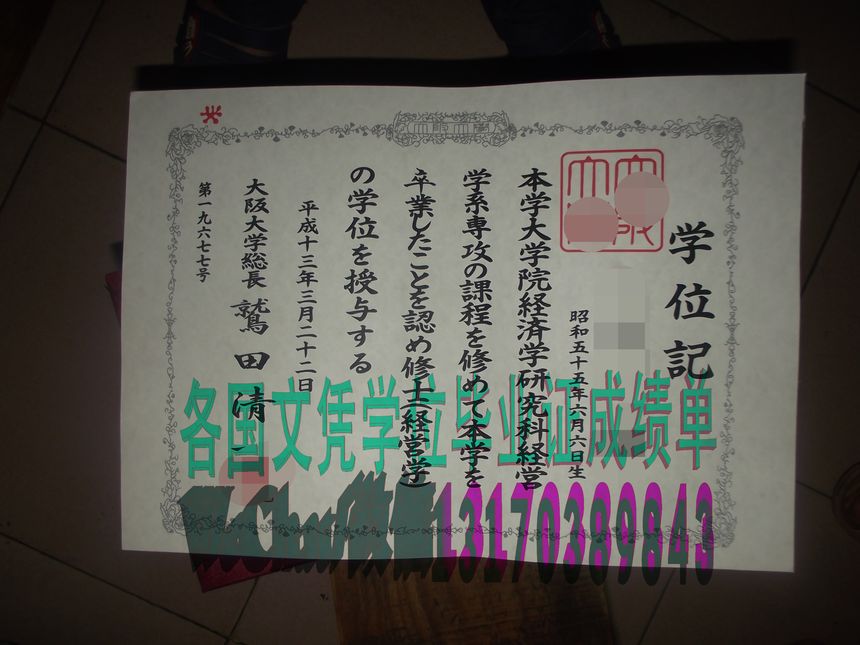 学位記
昭和五十五年六月六日生
本学大学院経済学研究科経営
学系専攻の課程を修めて本学を
卒業したことを認め修士(経営学)
の学位を授与する
平成十三年三月二十二日
大阪大学総長 鷲田清一
第一九六七七号
各国文凭学位毕业证成绩单
WeChat/微信13170389843